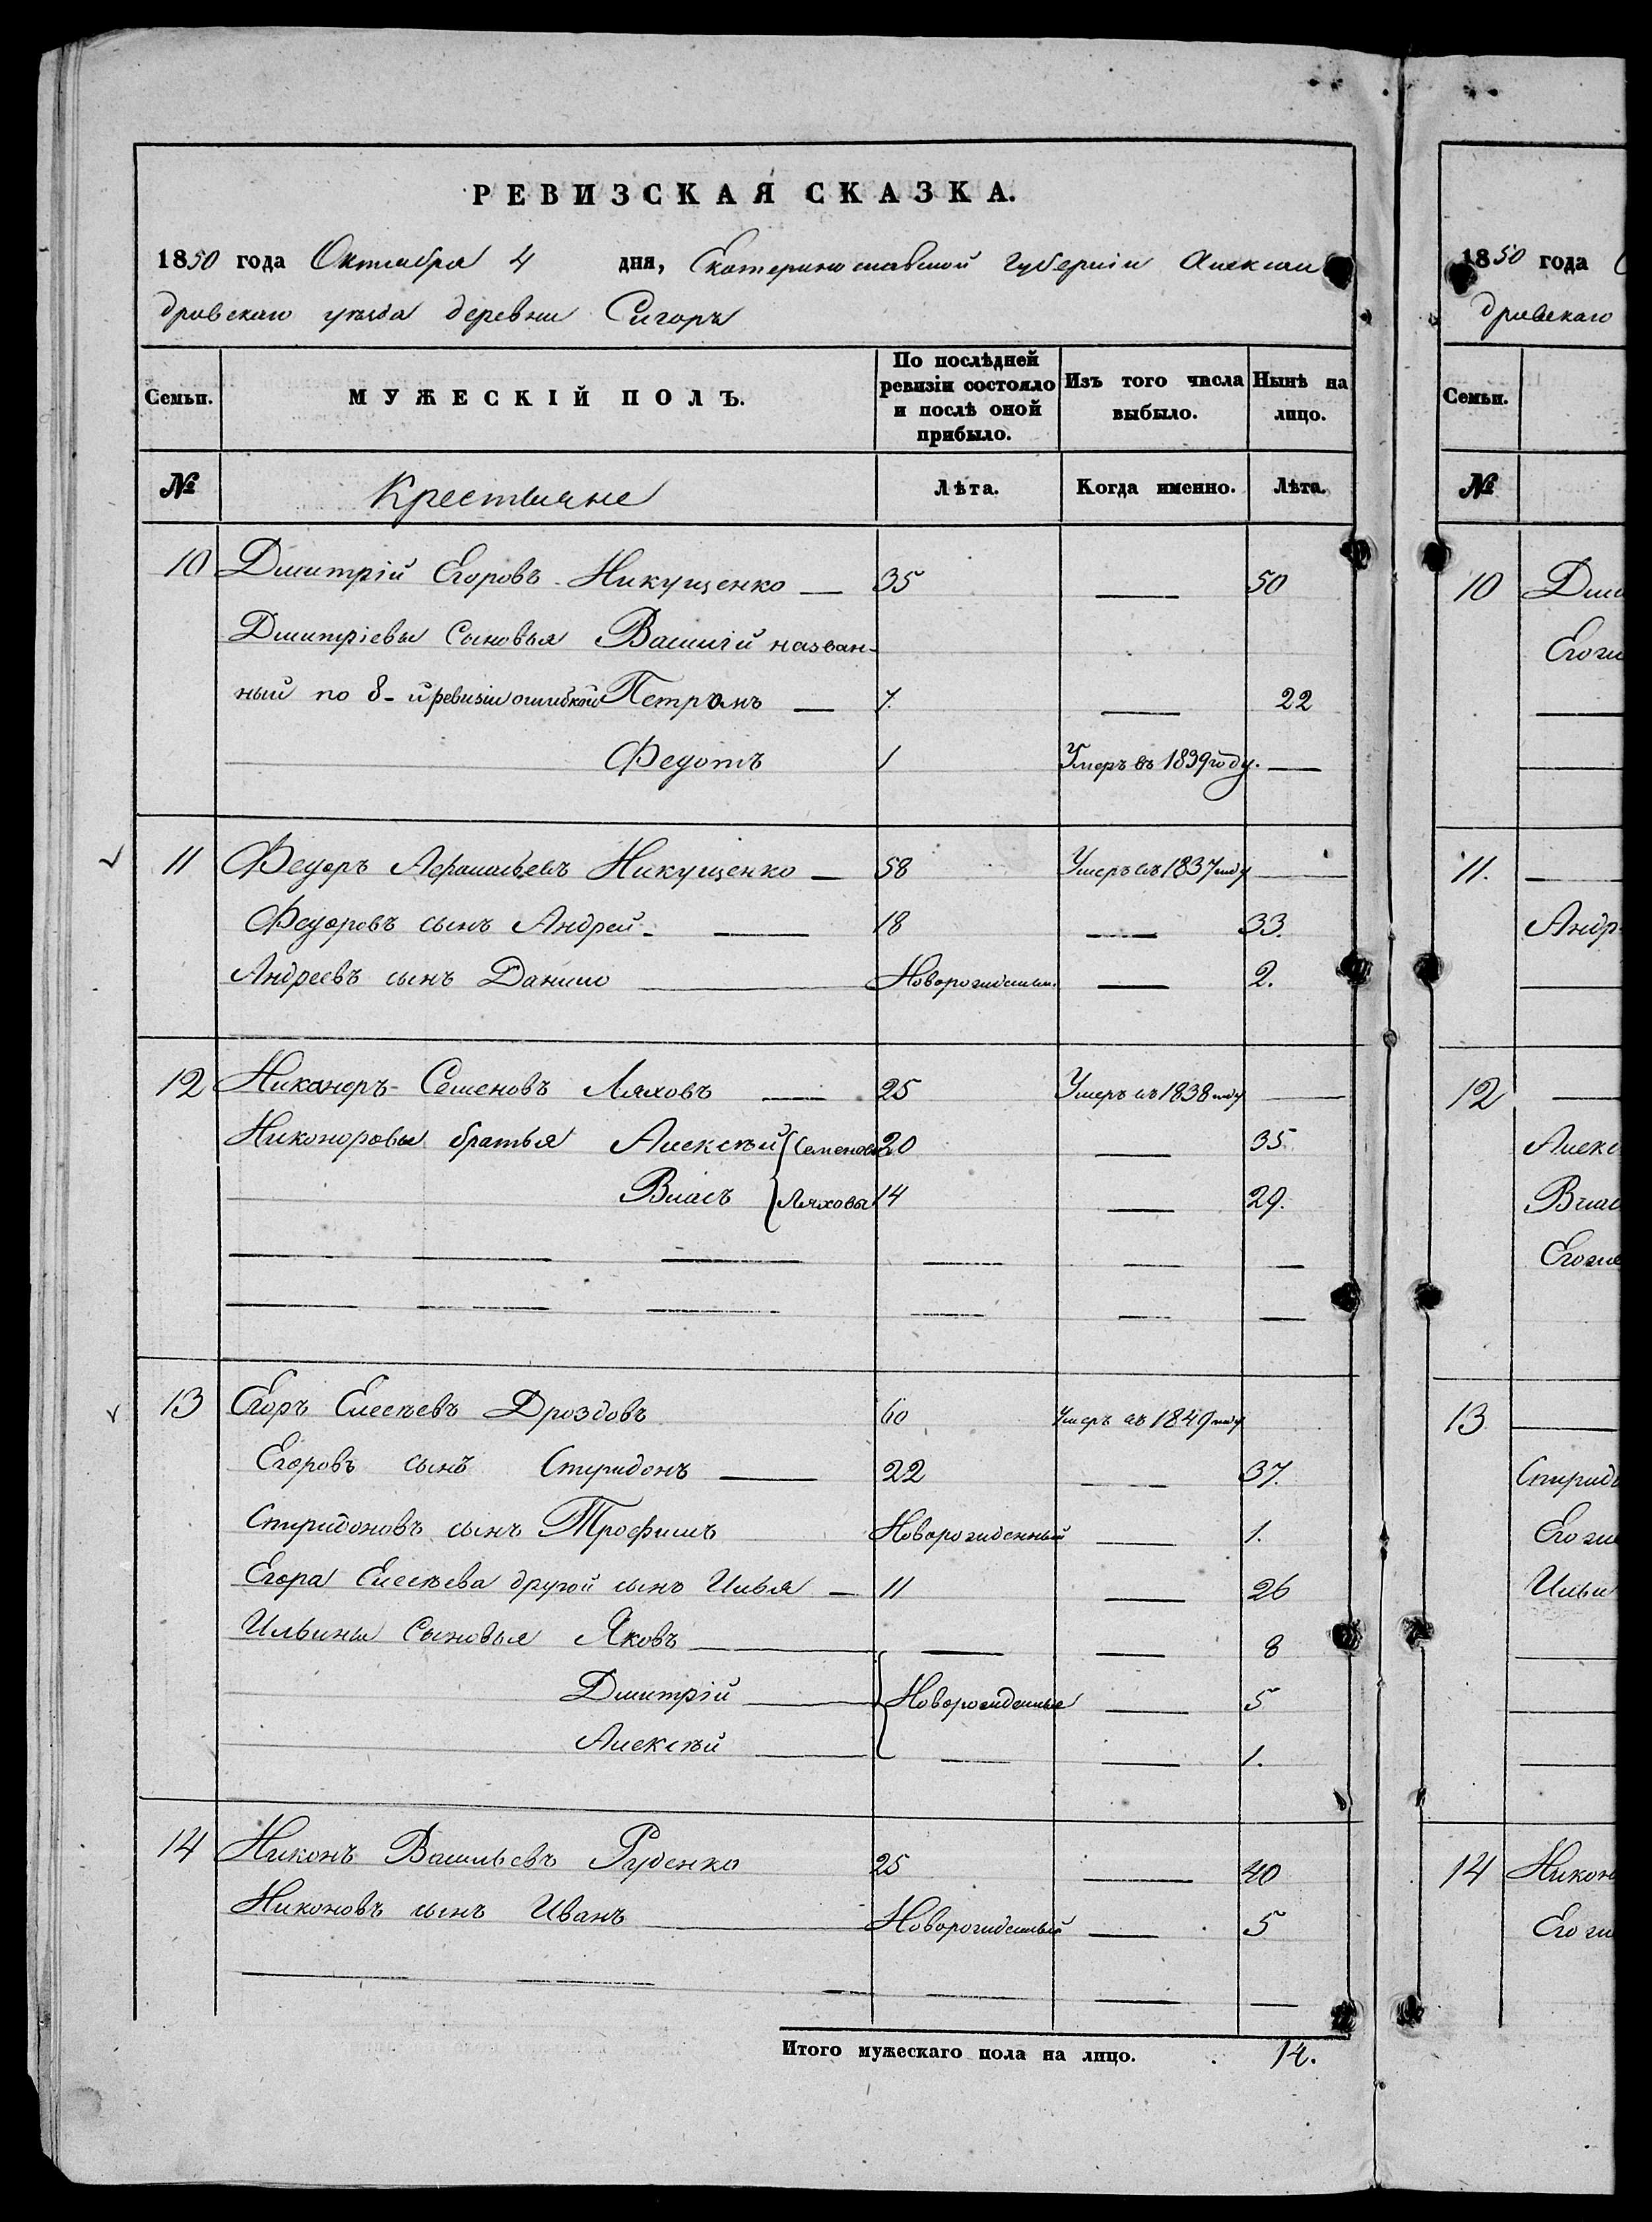 РЕВИЗСКАЯ СКАЗКА.
1850 года Октября 4 дня, Екатеринославской губерніи Алексан
дровскаго уѣзда деревни Сигоръ
Семьи.
МУЖЕСКІЙ ПОЛЪ.
По послѣдней ревизіи состояло и послѣ оной прибыло.
Изъ того числа выбыло.
Нынѣ на лицо.
№ Крестьяне Лѣта. Когда именно. Лѣта.
10 Дмитрій Егоровъ Никущенко — 35 — 50
Дмитріевы Сыновья Василій назван-
ный по 8-й ревизіи ошибкой Петромъ — 7. — 22
Федотъ 1 Умеръ въ 1839 году. —
11 Федоръ Афанасьевъ Никущенко — 58 Умеръ въ 1837 году —
Федоровъ сынъ Андрей — 18 — 33.
Андреевъ сынъ Данило — Новорожденный — 2.
12 Никаноръ Семеновъ Ляховъ — 25 Умеръ въ 1838 году —
Никоноровы братья Алексѣй { Семеновы 20 — 35.
Власъ } Ляховы 14 — 29.
13 Егоръ Елесѣевъ Дроздовъ 60 Умеръ въ 1849 году
Егоровъ сынъ Спиридонъ — 22 — 37.
Спиридоновъ сынъ Трофимъ Новорожденный — 1.
Егора Елесѣева другой сынъ Илья — 11 — 26
Ильины Сыновья Яковъ — — — 8
Дмитрій — Новорожденные — 5
Алексѣй — — — 1.
14 Никонъ Васильевъ Руденко 25 — 40
Никоновъ сынъ Иванъ — Новорожденный — 5
Итого мужескаго пола на лицо. 14.
1850 года
дровскаго
Семьи.
№
10
11.
12
13
14